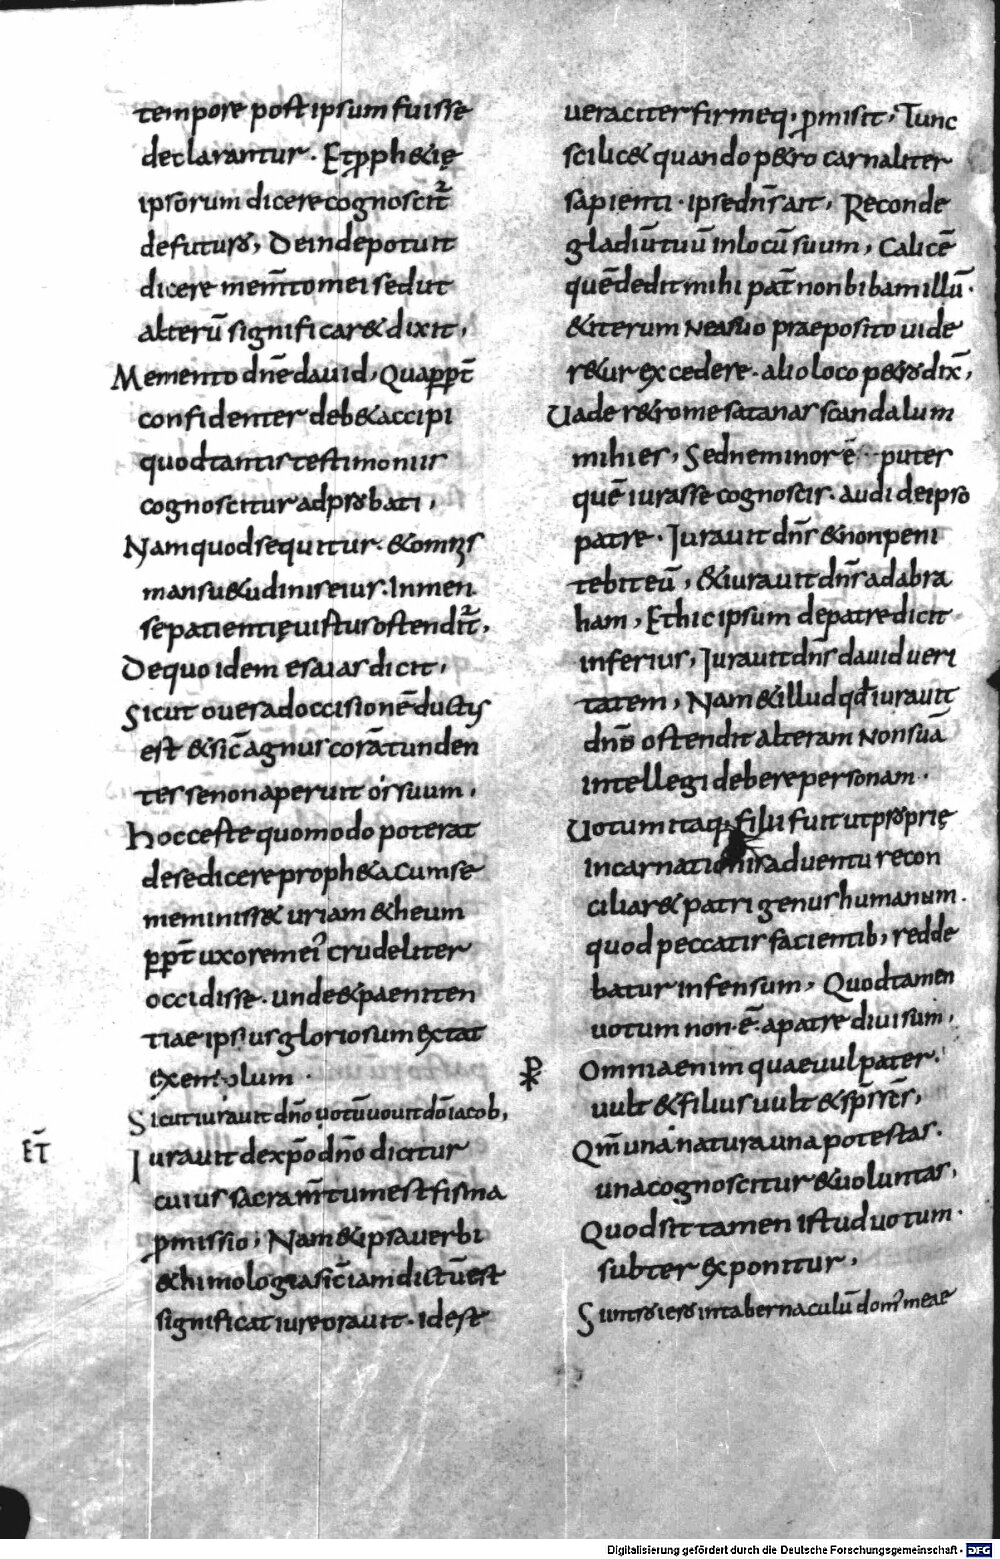 tempore post ipsum fuisse
declarantur. Et pphetię
ipsorum dicere cognoscit̃
de futuro, Deinde potuit
dicere mem̄to mei sed ut
alterū significaret dixit,
Memento dn̄e david, Quapp̄t
confidenter debet accipi
quod tantis testimoniis
cognoscitur adprobati,
Nam quod sequitur. & om̄s
mansuetudinis eius. In men
se patientię uistus ostendit̃,
De quo idem esaias dicit,
Sicut ovis ad occisionē ductus
est & sic̄ agnus corā tunden
tes se non aperuit os suum,
Hoc ceste quomodo poterat
de se dicere propheta cum se
meminisset uriam etheum
pp̄t uxorem ei' crudeliter
occidisse. unde & paeniten
tiae ipsius gloriosum extat
exemplum
Sicut iuravit dn̄o votū vovit dō iacob,
ET̄
Iuravit de xp̄o dn̄o dicitur
cuius sacram̄tum est firma
pmissio, Nam & ipsa verbi
ethimologia sic̄ iam dictū est
significat iure oravit. id est
veraciter firmeq, pmisit, Tunc
scilicet quando petro carnaliter
sapienti. ipse dn̄s ait, Reconde
gladiū tuū in locū suum, Calicē
quē dedit mihi pat̄ non bibam illū.
& iterum ne a suo praeposito vide
retur excedere. alio loco petro dix̄,
Vade retro me satanas scandalum
mihi es, Sed ne minor ē putes
quē iurasse cognoscis. audi de ipso
patre. Iuravit dn̄s & non peni
tebit eū, & iuravit dn̄s ad abra
ham, Et hic ipsum de patre dicit
inferius, Iuravit dn̄s david veri
tatem, Nam & illud qđ iuravit
dn̄o ostendit alteram non suā
intellegi debere personam.
Votum itaq, filii fuit ut proprię
incarnationis adventu recon
ciliaret patri genus humanum.
quod peccatis facientib, redde
batur infensum, Quod tamen
votum non ē a patre divisum,
⳩ Omnia enim quae vul pater.
vult & filius vult & sp̄s sc̄s,
Qm̄ una natura una potestas.
una cognoscitur & voluntas,
Quod sit tamen istud votum.
subter exponitur,
Si introiero in tabernaculū dom' meae
Digitalisierung gefördert durch die Deutsche Forschungsgemeinschaft - DFG